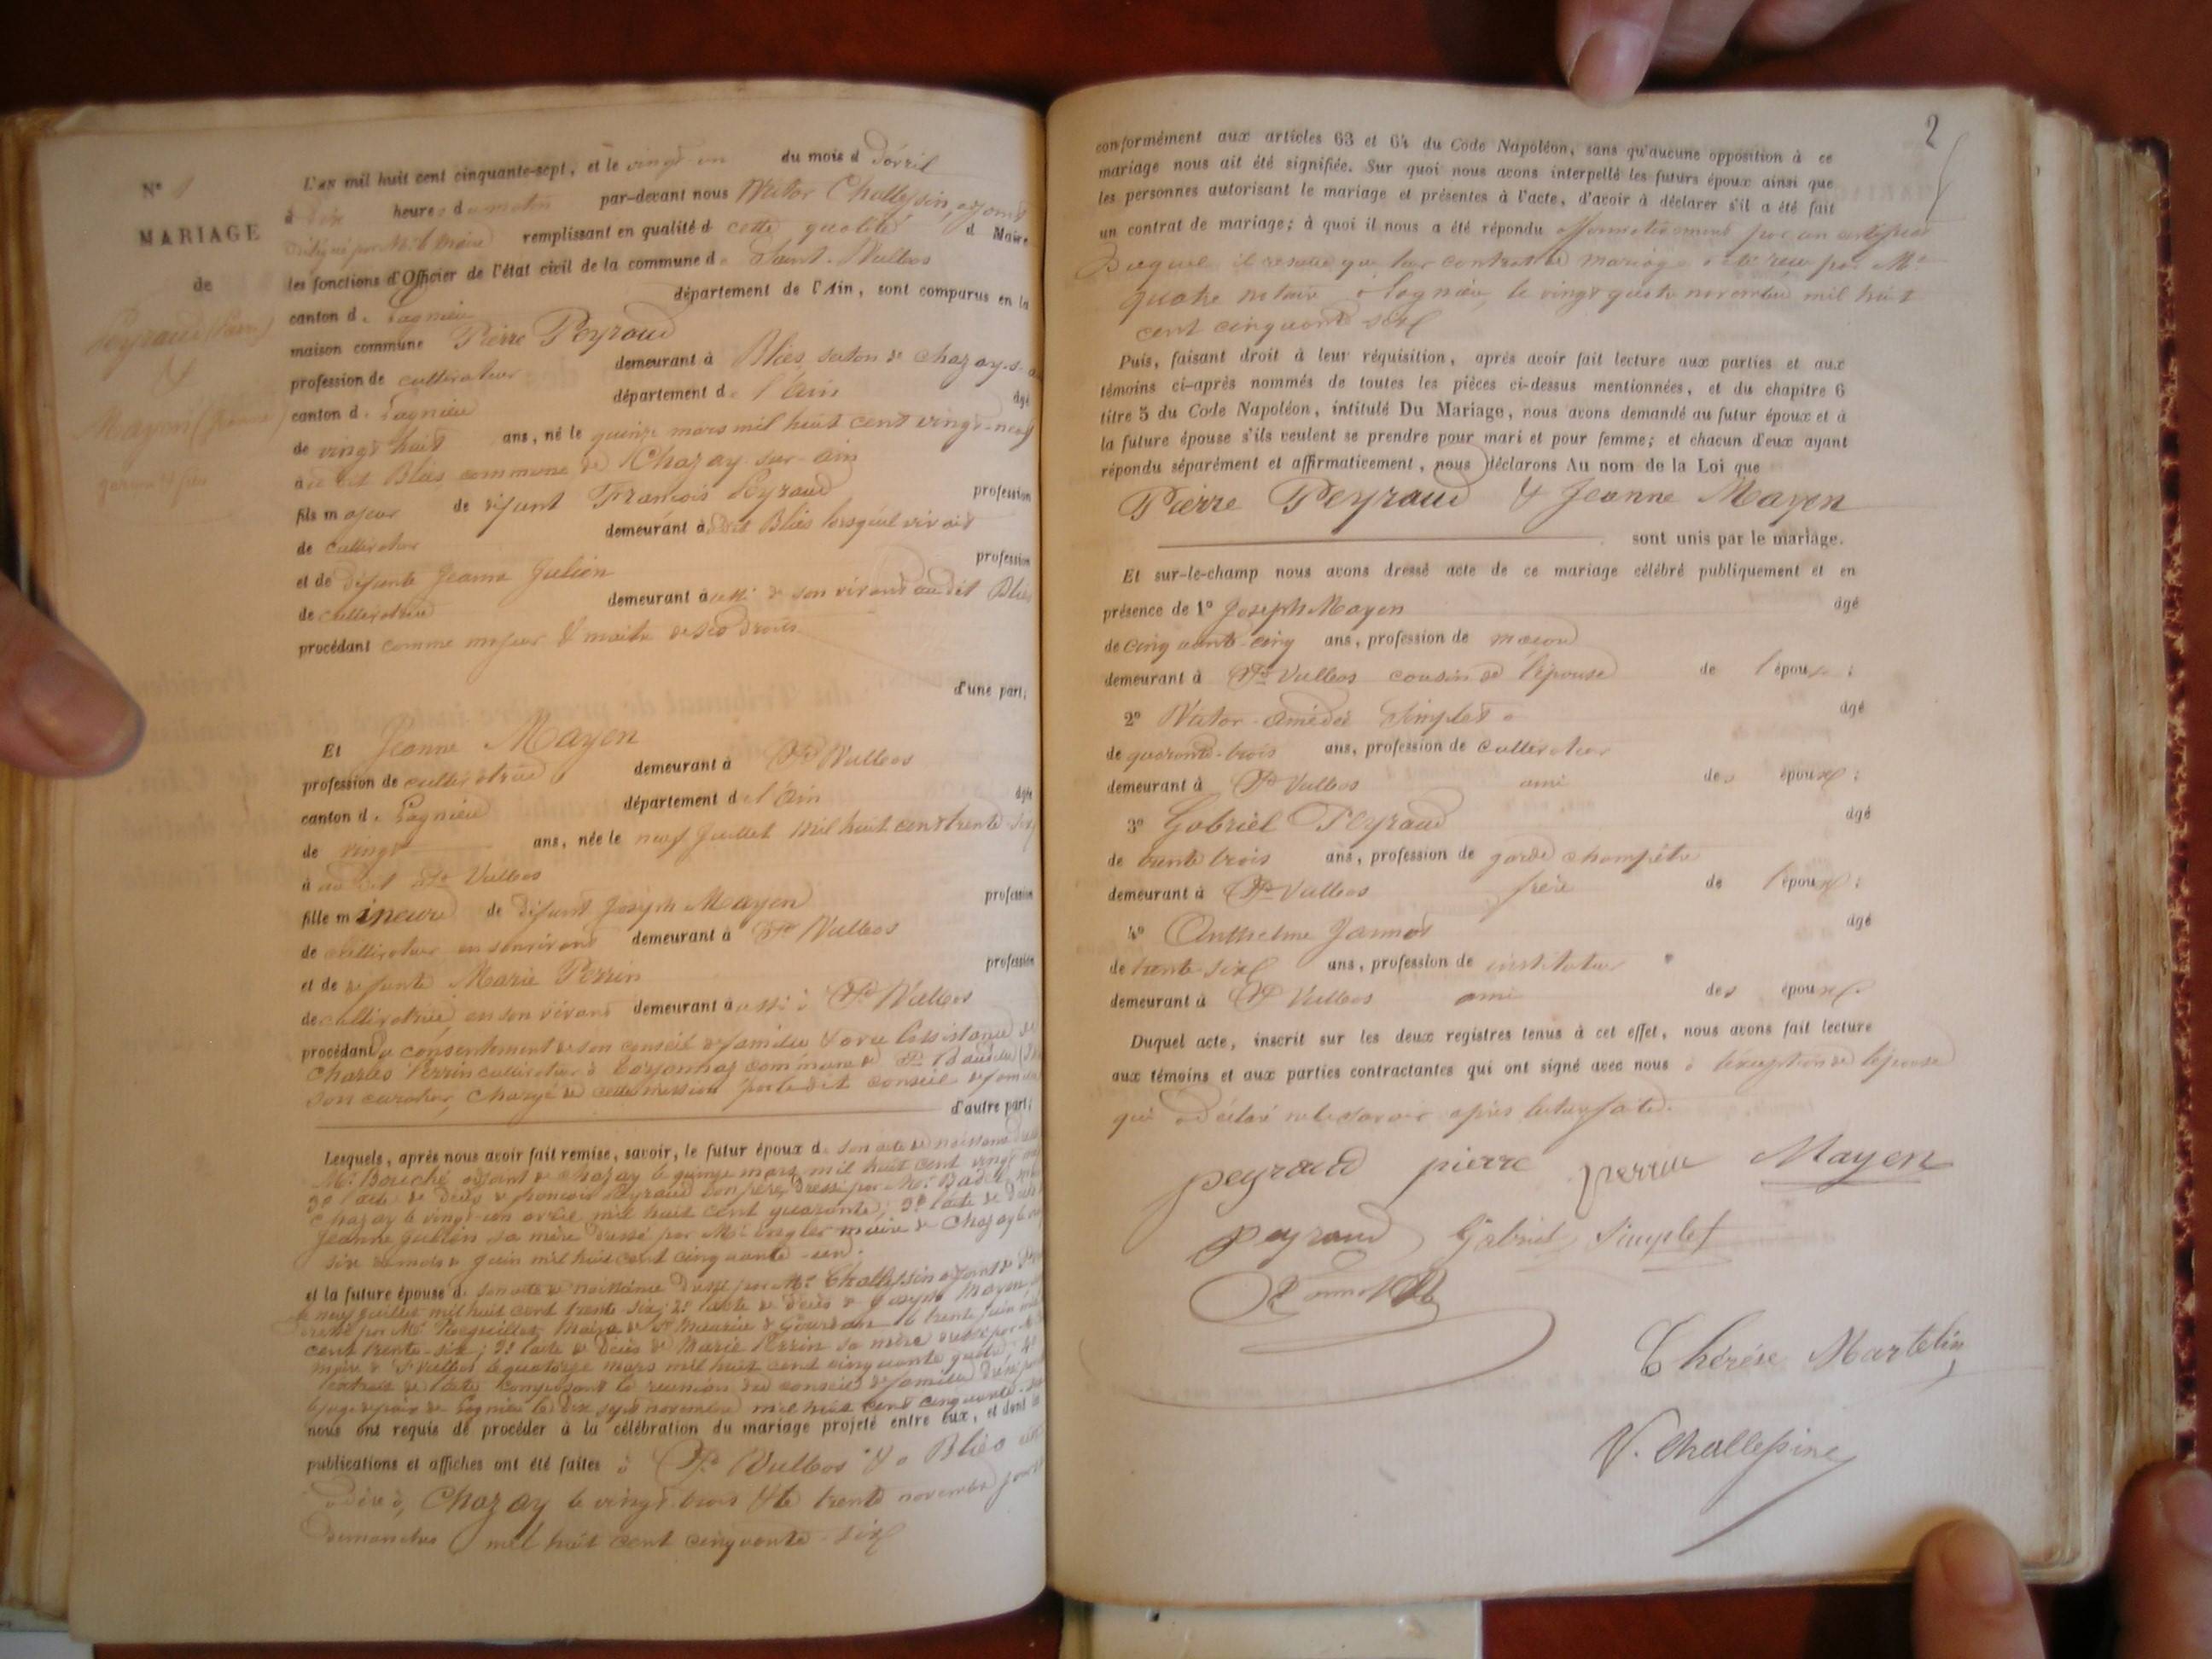 N° 1
MARIAGE
de
Peyraud (Pierre)
&
Mayen (Jeanne)
garçon & fille
L'an mil huit cent cinquante-sept, et le vingt un du mois d'avril
à dix heures du matin par-devant nous Victor Challessin, adjoint
délégué par Mr le Maire remplissant en qualité d cette qualité d Maire
les fonctions d'Officier de l'état civil de la commune de Saint-Vulbas
canton de Lagnieu département de l'Ain, sont comparus en la
maison commune Pierre Peyraud
profession de cultivateur demeurant à Blies, section de Chazay-s-
canton de Lagnieu département de l'Ain âgé
de vingt huit ans, né le quinze mars mil huit cent vingt-neuf
à Blies, commune de Chazay-sur-ain
fils majeur de défunt François Peyraud profession
de cultivateur demeurant à dit Blies lorsqu'il vivait
et de défunte Jeanne Julien profession
de cultivatrice demeurant à aussi de son vivant au dit Blies
procédant comme majeur & maître de ses droits
d'une part;
Et Jeanne Mayen
profession de cultivatrice demeurant à St Vulbas
canton de Lagnieu département de l'Ain âgée
de vingt ans, née le neuf Juillet mil huit cent trente six
à au dit St Vulbas
fille mineure de défunt Joseph Mayen profession
de cultivateur en son vivant demeurant à St Vulbas
et de défunte Marie Perrin profession
de cultivatrice en son vivant demeurant à aussi à St Vulbas
procédant du consentement de son conseil de famille & avec l'assistance de
Charles Perrin cultivateur à commune de St Baudille
son curateur, chargé de cette mission par le dit conseil de famille
d'autre part;
Lesquels, après nous avoir fait remise, savoir, le futur époux de son acte de naissance
Mr Bouché adjoint de Chazay le quinze mars mil huit cent vingt
2° l'acte de décès de françois Peyraud son père, dressé par Mr
Chazay le vingt-un avril mil huit cent quarante; 3° l'acte de décès
Jeanne Julien sa mère dressé par Mr maire de Chazay le
six du mois de Juin mil huit cent cinquante-un.
et la future épouse de son acte de naissance dressé par Mr Challessin adjoint de
le neuf Juillet mil huit cent trente six; 2° l'acte de décès de Joseph Mayen
dressé par Mr Maire de St Maurice de Gourdan le trente juin mil
cent trente-six; 3° l'acte de décès de Marie Perrin sa mère dressé par
maire de St Vulbas le quatorze mars mil huit cent cinquante quatre; 4°
l'extrait de l'acte la réunion du conseil de famille
le juge de paix de Lagnieu le dix sept novembre mil huit cent cinquante-six
nous ont requis de procéder à la célébration du mariage projeté entre eux, et dont les
publications et affiches ont été faites à St Vulbas & à Blies
à dire à, Chazay le vingt trois & le trente novembre jours
dimanches mil huit cent cinquante-six
2
conformément aux articles 63 et 64 du Code Napoléon, sans qu'aucune opposition à ce
mariage nous ait été signifiée. Sur quoi nous avons interpellé les futurs époux ainsi que
les personnes autorisant le mariage et présentes à l'acte, d'avoir à déclarer s'il a été fait
un contrat de mariage; à quoi il nous a été répondu affirmativement par un certificat
Duquel il résulte que leur contrat de mariage a été reçu par Me
quatre notaire à Lagnieu, le vingt quatre novembre mil huit
cent cinquante six
Puis, faisant droit à leur réquisition, après avoir fait lecture aux parties et aux
témoins ci-après nommés de toutes les pièces ci-dessus mentionnées, et du chapitre 6
titre 5 du Code Napoléon, intitulé Du Mariage, nous avons demandé au futur époux et à
la future épouse s'ils veulent se prendre pour mari et pour femme; et chacun d'eux ayant
répondu séparément et affirmativement, nous déclarons Au nom de la Loi que
Pierre Peyraud & Jeanne Mayen
sont unis par le mariage.
Et sur-le-champ nous avons dressé acte de ce mariage célébré publiquement et en
présence de 1° Joseph Mayen âgé
de cinquante-cinq ans, profession de maçon
demeurant à St Vulbas cousin de l'épouse de l'épou ;
2° Victor-Amédée Simplet âgé
de quarante-trois ans, profession de cultivateur
demeurant à St Vulbas ami des époux ;
3° Gabriel Peyraud âgé
de trente trois ans, profession de garde champêtre
demeurant à St Vulbas frère de l'époux ;
4° Anthelme Jannot âgé
de trente-six ans, profession de instituteur
demeurant à St Vulbas ami des époux.
Duquel acte, inscrit sur les deux registres tenus à cet effet, nous avons fait lecture
aux témoins et aux parties contractantes qui ont signé avec nous à l'exception de l'épouse
qui a déclaré ne le savoir après lecture faite.
peyraud pierre perrin Mayen
peyraud Gabriel Simplet
Jannot
Thérèse Martelin
V. Challessine